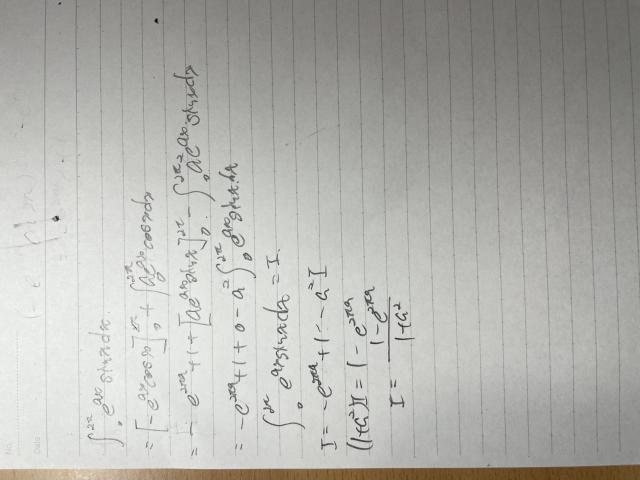 No.
Date
∫₀^{2π} e^{ax} sin x dx.
= [-e^{ax} cos x]₀^{2π} + ∫₀^{2π} a e^{ax} cos x dx
= - e^{2πa} + 1 + [a e^{ax} sin x]₀^{2π} - ∫₀^{2π} a² e^{ax} sin x dx
= -e^{2πa} + 1 + 0 - a² ∫₀^{2π} e^{ax} sin x dx
∫₀^{2π} e^{ax} sin x dx = I.
I = -e^{2πa} + 1 - a² I
(1+a²)I = 1 - e^{2πa}
I = \frac{1 - e^{2πa}}{1+a²}